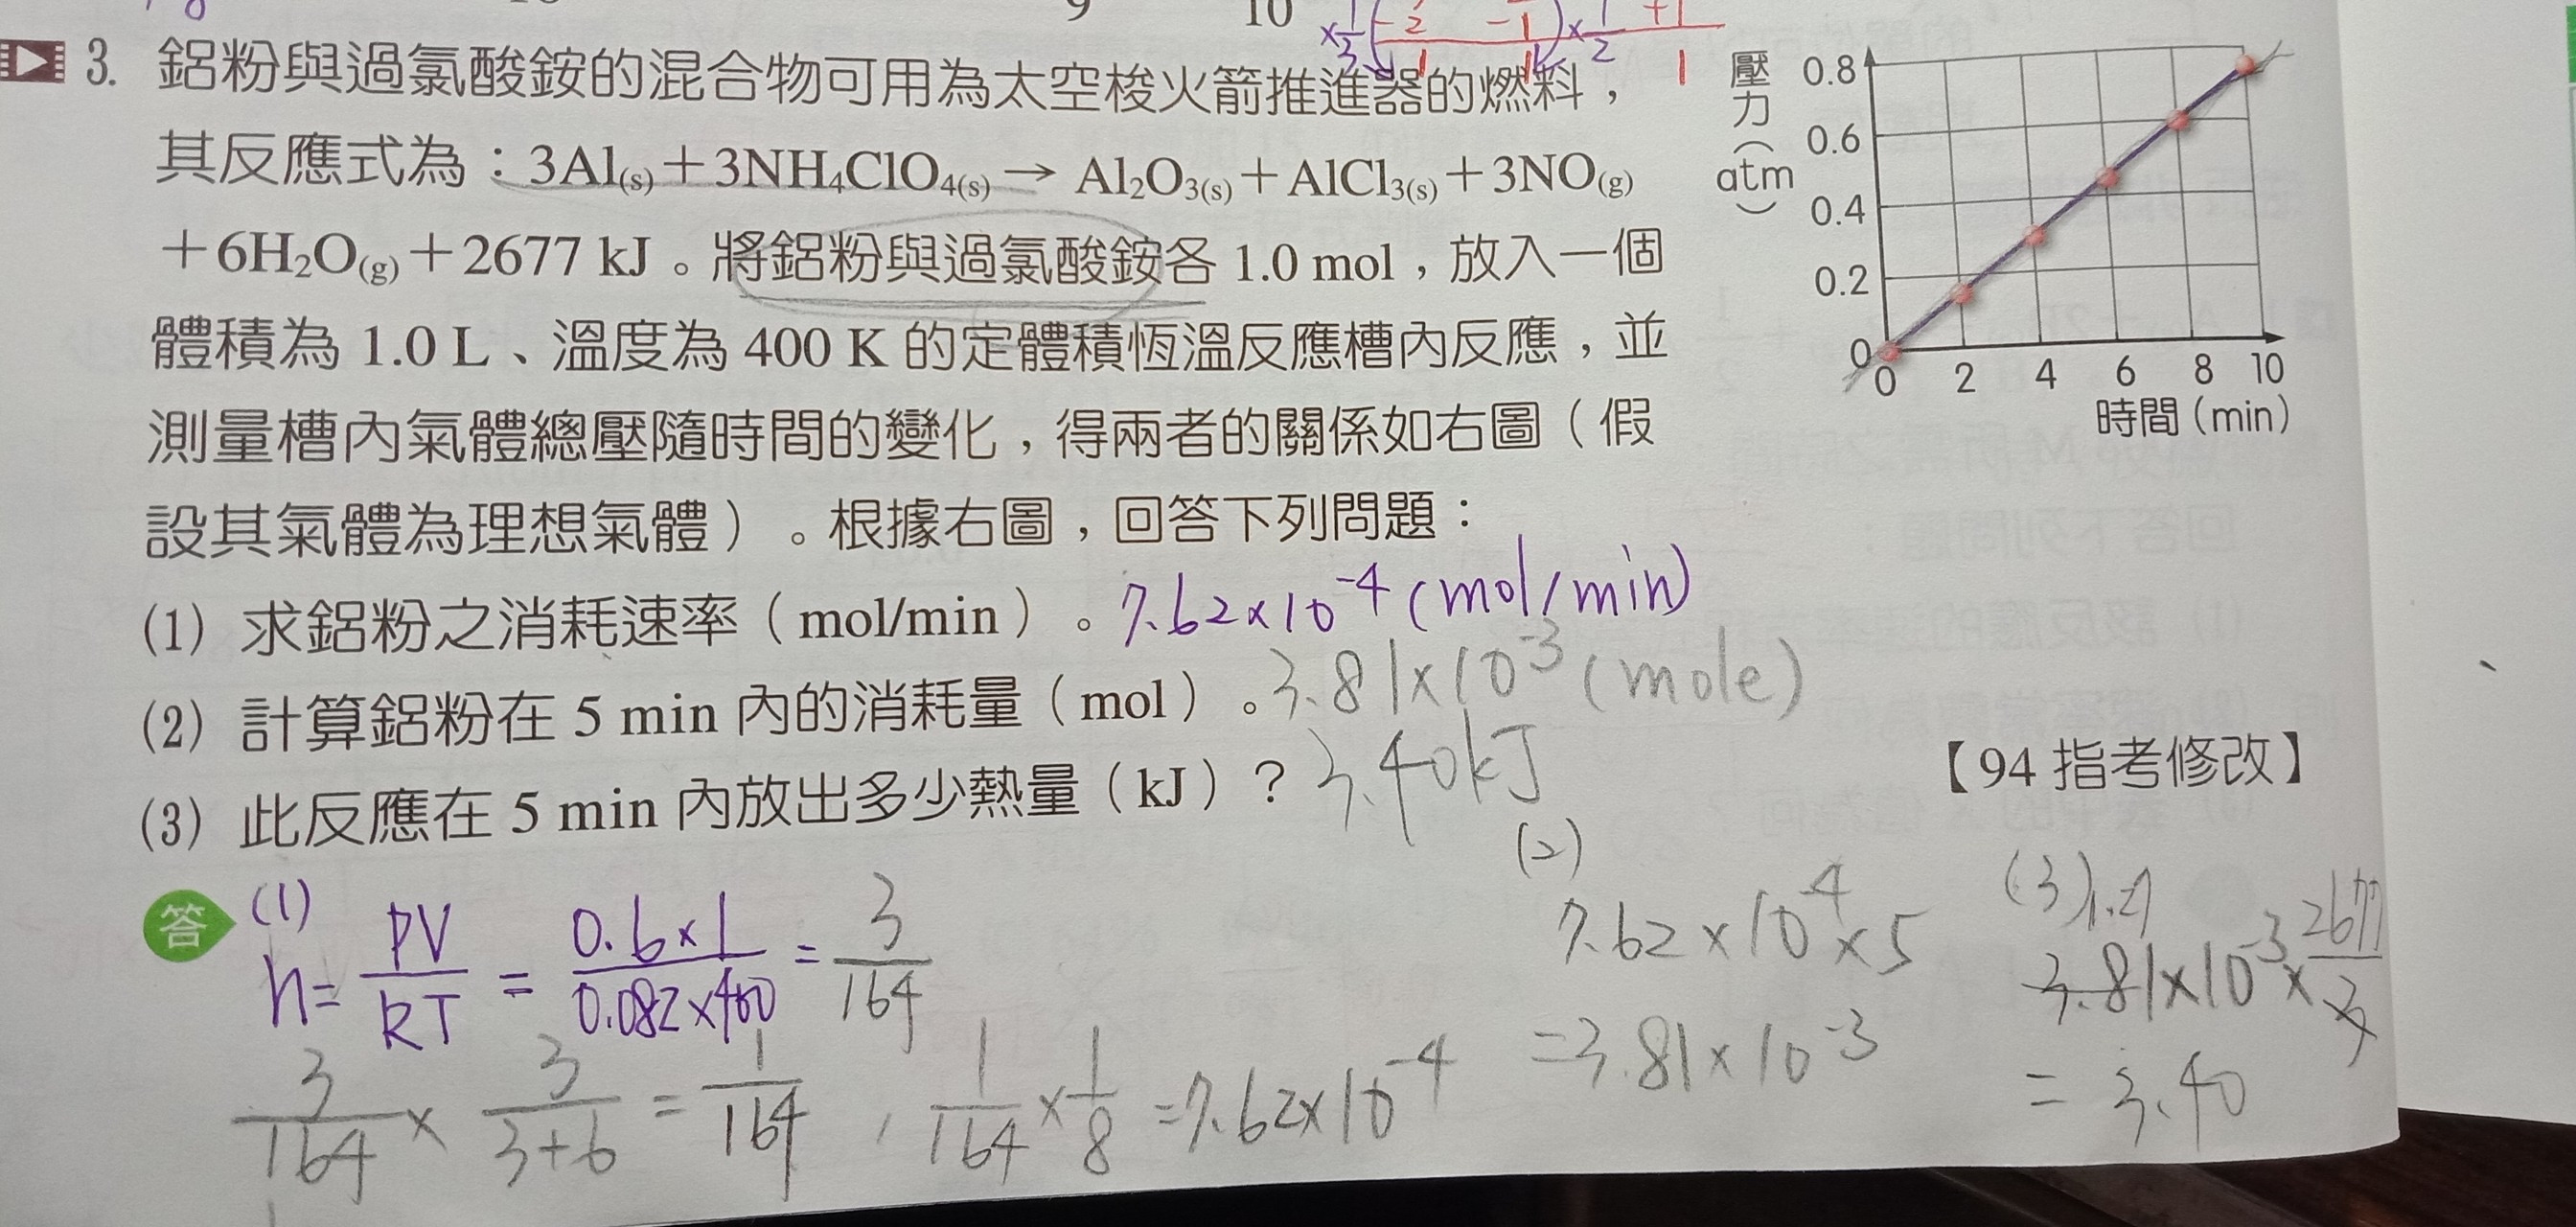 10
3. 鋁粉與過氯酸銨的混合物可用為太空梭火箭推進器的燃料，
其反應式為：3Al(s)＋3NH₄ClO₄(s)→ Al₂O₃(s)＋AlCl₃(s)＋3NO(g)
＋6H₂O(g)＋2677 kJ。將鋁粉與過氯酸銨各 1.0 mol，放入一個
體積為 1.0 L、溫度為 400 K 的定體積恆溫反應槽內反應，並
測量槽內氣體總壓隨時間的變化，得兩者的關係如右圖（假
設其氣體為理想氣體）。根據右圖，回答下列問題：
(1) 求鋁粉之消耗速率（mol/min）。7.62×10⁻⁴ (mol/min)
(2) 計算鋁粉在 5 min 內的消耗量（mol）。3.81×10⁻³ (mole)
(3) 此反應在 5 min 內放出多少熱量（kJ）？ 3.40kJ
【94 指考修改】
壓力（atm）
0.8
0.6
0.4
0.2
0
0 2 4 6 8 10
時間（min）
答
(1)
n= PV/RT = 0.6×1/0.082×400 = 3/164
3/164 × 3/3+6 = 1/164 , 1/164 × 1/8 =7.62×10⁻⁴
(2)
7.62×10⁻⁴×5
=3.81×10⁻³
(3)
3.81×10⁻³× 2677/3
= 3.40